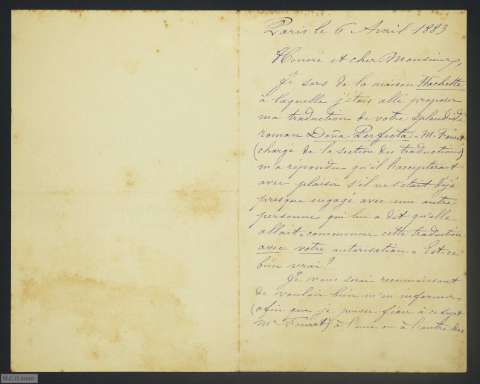 Paris le 6 Avril 1883
Honoré et cher Monsieur,
Je sors de la maison Hachette
à laquelle j'étais allé proposer
ma traduction de votre splendide
roman Doña Perfecta. M.
(chargé de la section des traductions)
m'a répondu qu'il l'accepterait
avec plaisir s'il ne s'était déjà
presque engagé avec une autre
personne qui lui a dit qu'elle
allait commencer cette traduction
avec votre autorisation. Est-ce
bien vrai?
Je vous serai reconnaissant
de vouloir bien m'en informer
(afin que je puisse à ce sujet
Mr) à l'une ou à l'autre des